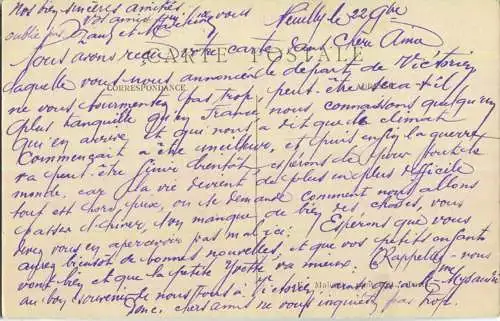 Nos bien sincères amitiés
vos amis qui ne vous
oublie pas
Neuilly le 22 9bre
CARTE POSTALE
CORRESPONDANCE
Nous avons reçu votre carte Cher Ami
laquelle vous nous annoncez le départ de Victorien
ne vous tourmentez pas trop, peut-être sera-t-il
plus tranquille qu'en France, nous connaissons quelqu'un
qui en arrive et qui nous a dit que le climat
commençait à être meilleur, et puis enfin la guerre
va peut-être finir bientôt, espérons-le pour tout le
monde, car la vie devient de plus en plus difficile
tout est hors prix, on se demande comment nous allons
passer l'hiver, l'on manque de bien des choses, vous
devez vous en apercevoir pas mal ici. Espérons que vous
aurez bientôt de bonnes nouvelles, et que vos petits enfants
vont bien et que la petite Yvette va mieux. Rappelez-vous
au bon souvenir de nous tous à Victorien
Donc, chers amis ne vous inquiétez pas trop.